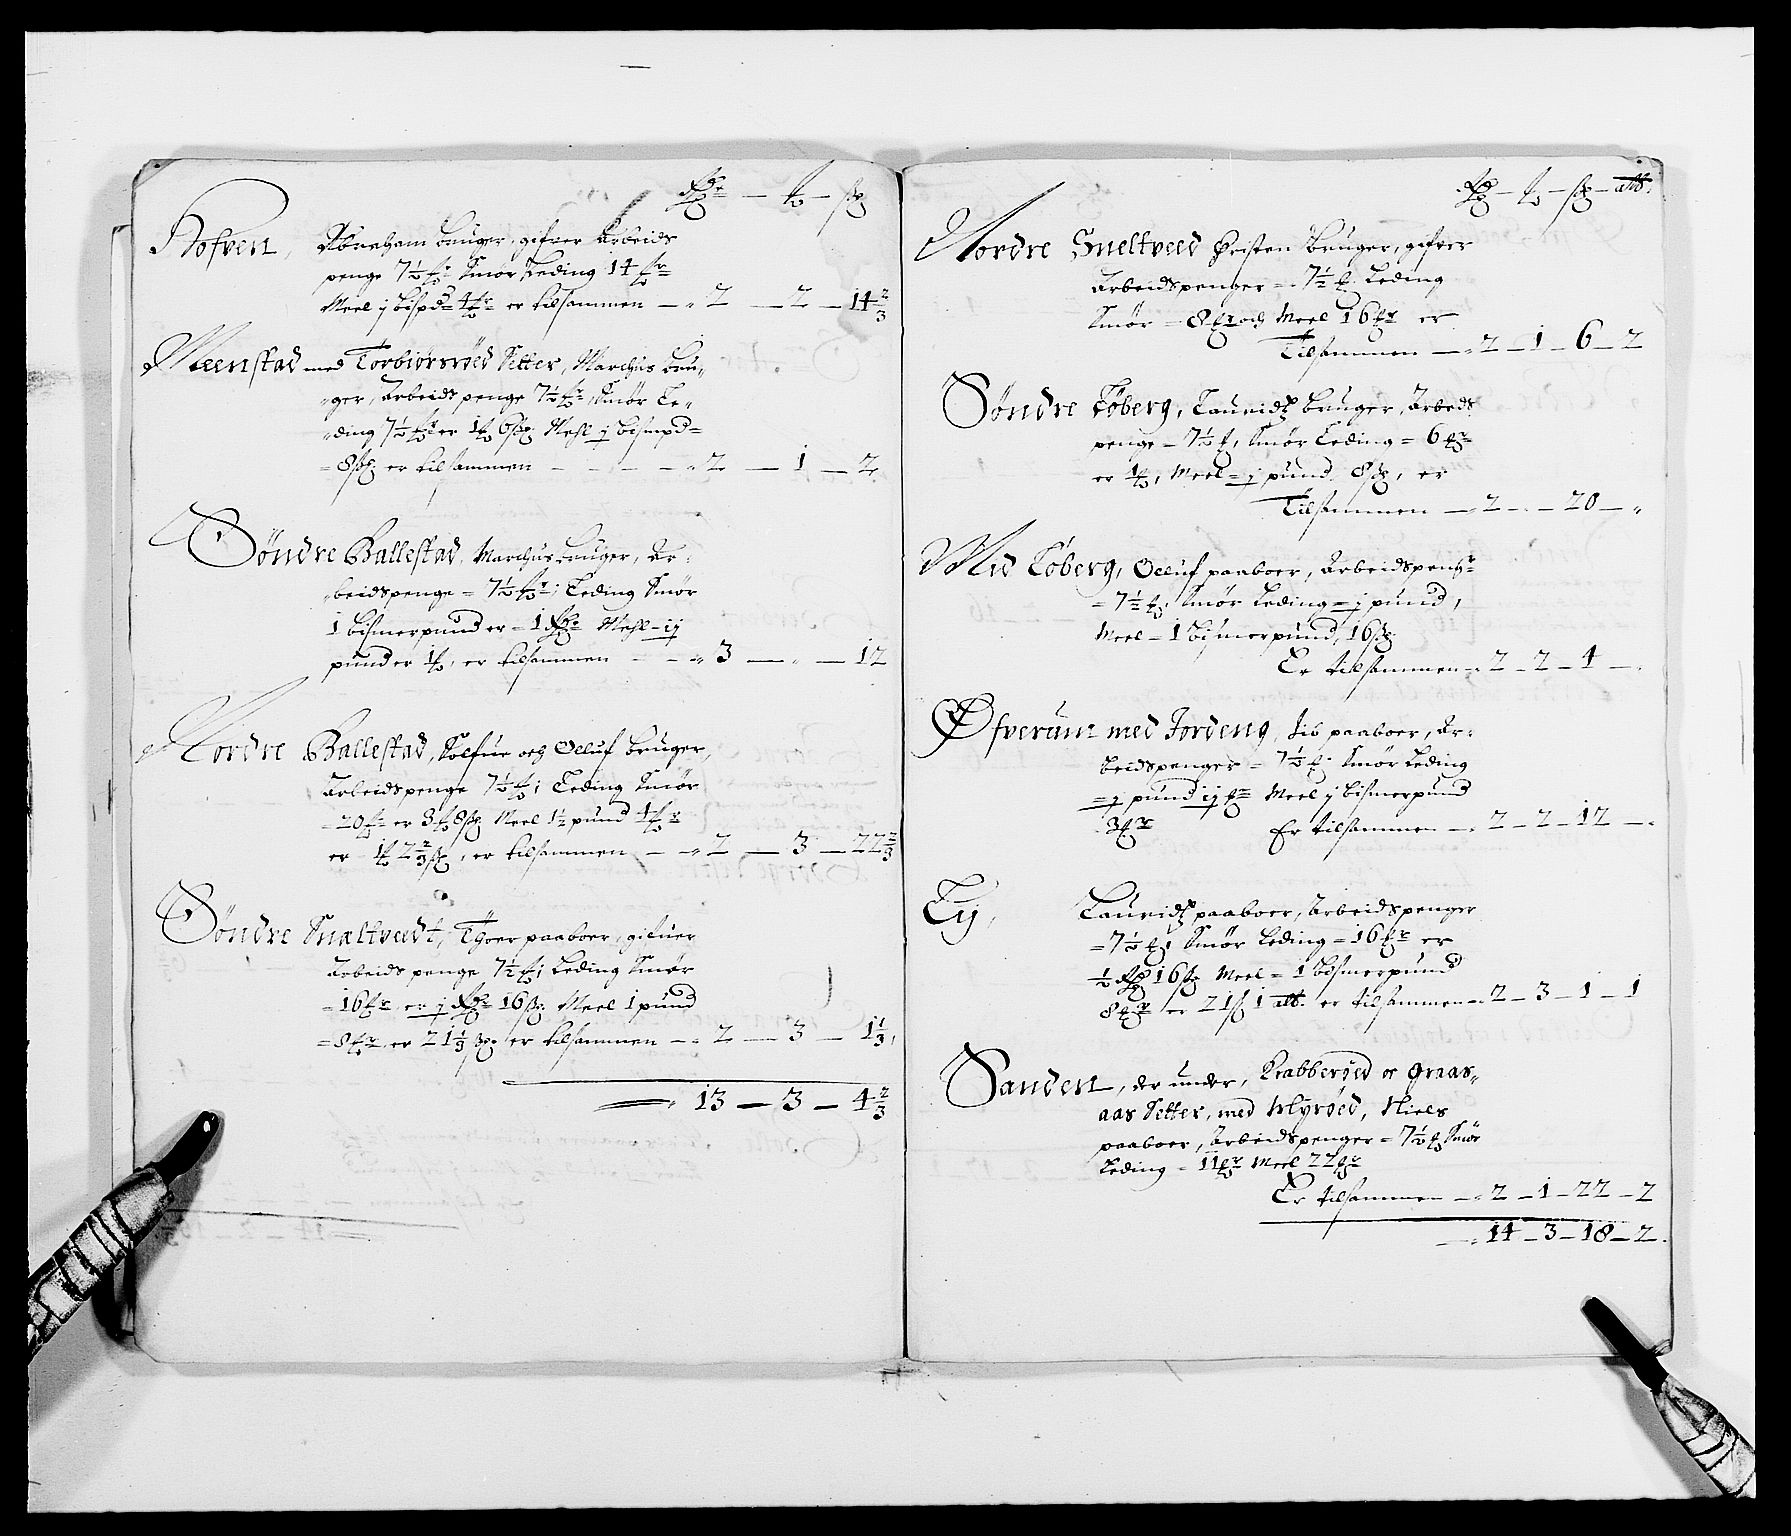 Rdr — ort — sk
Hofven, Abraham bruger, gifver Arbeids
penge 7½ ort, Smør Leding 14 mrk
Meel j bispd 4 mrk er tilsammen — 2 — 2 — 14 2/3
Meenstad med Torbiørsrøed Setter, Marchus bru„
„ger, Arbeids penge 7½ ort, Smør Le„
„ding 7½ mrk er 1 ort 6 sk Mehl j bismpd
8 sk er tilsammen — 2 — 1 — 2
Søndre Ballestad, Marchus bruger, Ar„
„beidspenge 7½ ort; Leding Smør
1 bismerpund er 1 Rdr Mehl ij
pund er 1 ort, er tilsammen — 3 — „ — 12
Nordre Ballestad, Solfue och Oeluf bruger,
Arbeids penge 7½ ort; Leding Smør
20 mrk er 3 ort 8 sk Meel 1½ pund 4 mrk
er 1 ort 2 2/3 sk, er tilsammen — 2 — 3 — 22 2/3
Søndre Snæltvedt, Thoer paaboer, gifuer
Arbeids penge 7½ ort; Leding Smør
16 mrk er j Rdr 16 sk Meel 1 pund
8 mrk er 21 1/3 sk er tilsammen — 2 — 3 — 1 1/3
13 — 3 — 4 2/3
Rd — ort — sk — alb.
Nordre Sneltveed Christen bruger, gifver
Arbeidspenger 7½ ort Leding
Smør 8 mrk och Meel 16 mrk er
Tilsammen — 2 — 1 — 6 — 2
Søndre Løberg, Lauridz bruger, Arbeds
penge 7½ ort, Smør Leding 6 mrk
er 1 ort, Meel j pund 8 sk, er
Tilsammen — 2 — „ — 20 — „
Mid Løberg, Oeluf paaboer, Arbeidspengr
7½ ort, Smør Leding j pund,
Meel 1 bismerpund, 16 sk
Er tilsammen — 2 — 2 — 4 — „
Øfverum med Jordeng, Jib paaboer, Ar„
beidspenger 7½ ort Smør Leding
j pund ij mrk Meel j bismerpund
3 mrk Er tilsammen — 2 — 2 — 12 — „
Lij, Lauridz paaboer, Arbeidspenger
7½ ort Smør Leding 16 mrk er
½ Rd 16 sk Meel 1 bismerpund
8 mrk er 21 sk 1 alb. er tilsammen — 2 — 3 — 1 — 1
Sanden, der under, Krabberøed oc graas„
aas Setter, med Myrøed, Niels
paaboer, Arbeidspenger 7½ ort Smør
Leding 11 mrk Meel 22 mrk
Er tilsammen — 2 — 1 — 22 — 2
14 — 3 — 18 — 2